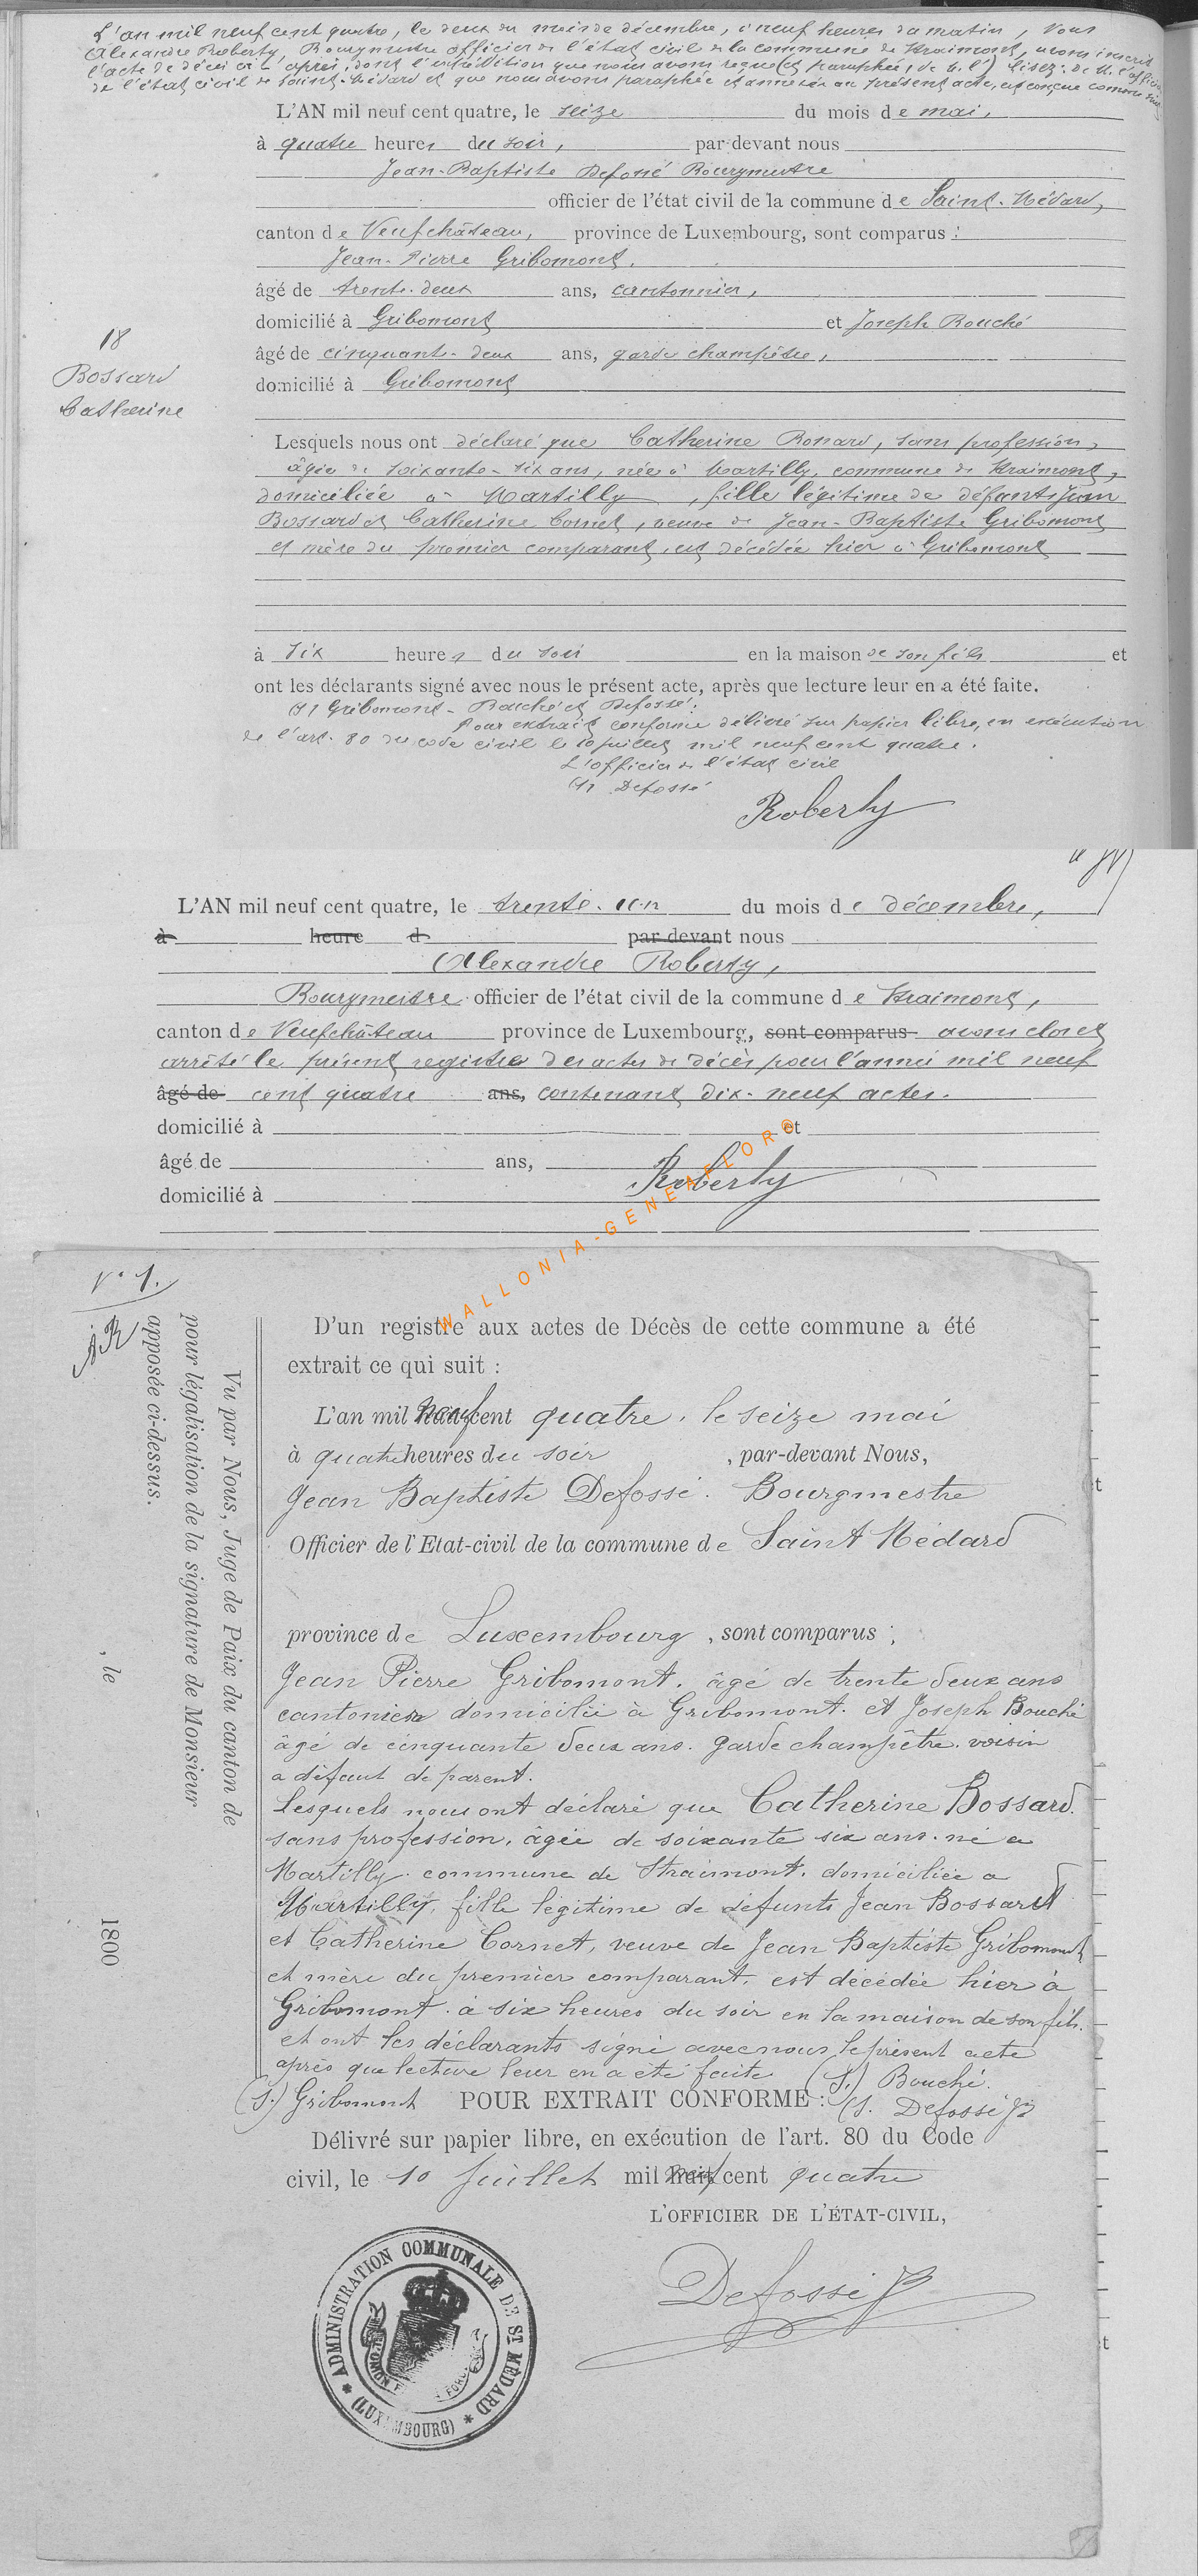 L'an mil neuf cent quatre, le deux du mois de décembre, à neuf heures du matin, Nous
Alexandre Roberty, Bourgmestre officier de l'état civil de la commune de Straimont, avons inscrit
l'acte de décès ci-après, dont l'expédition que nous avons reçue (et paraphée, de
de l'état civil de Saint-Médard et que nous avons paraphée et annexée au présent acte, est conçue comme suit
L'AN mil neuf cent quatre, le seize du mois de mai,
à quatre heures du soir, par-devant nous
Jean-Baptiste Defossé Bourgmestre
officier de l'état civil de la commune de Saint-Médard,
canton de Neufchâteau, province de Luxembourg, sont comparus :
Jean-Pierre Gribomont.
âgé de trente-deux ans, cantonnier,
domicilié à Gribomont et Joseph Bouché
âgé de cinquante-deux ans, garde champêtre,
domicilié à Gribomont
18
Bossard
Catherine
Lesquels nous ont déclaré que Catherine Bossard, sans profession,
âgée de soixante-six ans, née à Martilly, commune de Straimont,
domiciliée à Martilly, fille légitime de défunts Jean
Bossard et Catherine Cornet, veuve de Jean-Baptiste Gribomont
et mère du premier comparant, est décédée hier à Gribomont
à six heures du soir en la maison de son fils et
ont les déclarants signé avec nous le présent acte, après que lecture leur en a été faite.
(S) Gribomont - Bouché et Defossé.
Pour extrait conforme délivré sur papier libre, en exécution
de l'art. 80 du code civil le 10 juillet mil neuf cent quatre.
L'officier de l'état civil
(S) Defossé
Roberty
L'AN mil neuf cent quatre, le trente-un du mois de décembre,
à heure d par devant nous
Alexandre Roberty,
Bourgmestre officier de l'état civil de la commune de Straimont,
canton de Neufchâteau province de Luxembourg, sont comparus avons clos et
arrêté le présent registre des actes de décès pour l'année mil neuf
âgé de cent quatre ans, contenant dix-neuf actes.
domicilié à et
âgé de ans,
Roberty
domicilié à
WALLONIA-GENEAFLOR©
N° 1.
AR
Vu par Nous, Juge de Paix du canton de
pour légalisation de la signature de Monsieur
apposée ci-dessus.
, le 1800
D'un registre aux actes de Décès de cette commune a été
extrait ce qui suit :
L'an mil neuf cent quatre, le seize mai
à quatre heures du soir, par-devant Nous,
Jean Baptiste Defossé. Bourgmestre
Officier de l'Etat-civil de la commune de Saint Médard
province de Luxembourg, sont comparus ;
Jean Pierre Gribomont. âgé de trente deux ans
cantonier domicilié à Gribomont. et Joseph Bouché
âgé de cinquante deux ans. garde champêtre. voisin
a défaut de parent.
Lesquels nous ont déclaré que Catherine Bossard.
sans profession. âgée de soixante six ans. né a
Martilly. commune de Straimont. domiciliée a
Martilly, fille légitime de défunts Jean Bossard
et Catherine Cornet, veuve de Jean Baptiste Gribomont
et mère du premier comparant, est décédée hier à
Gribomont. à six heures du soir en la maison de son fils.
et ont les déclarants signé avec nous le présent acte
après que lecture leur en a été faite (S.) Bouché.
(S.) Gribomont POUR EXTRAIT CONFORME : (S. Defossé JB
Délivré sur papier libre, en exécution de l'art. 80 du Code
civil, le 10 Juillet mil neuf cent quatre
L'OFFICIER DE L'ÉTAT-CIVIL,
Defossé JB
ADMINISTRATION COMMUNALE DE ST MÉDARD
(LUXEMBOURG)